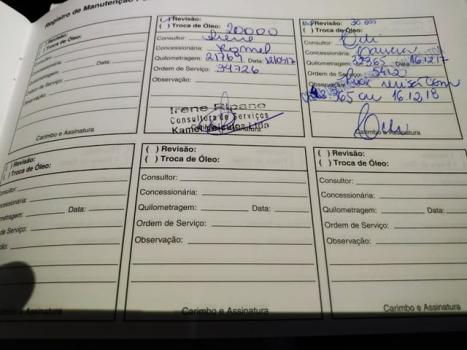 Registro de Manutenção
Revisão:
( ) Troca de Óleo:
Consultor:
Concessionária:
Quilometragem: Data:
Ordem de Serviço:
Observação:
Carimbo e Assinatura
Revisão: 20000
( ) Troca de Óleo:
Consultor: Irene
Concessionária: Kamel
Quilometragem: 21769 Data:
Ordem de Serviço: 34726
Observação:
Irene Ripano
Consultora de Serviços
Kamel Veículos Ltda
Carimbo e Assinatura
Revisão: 30 000
( ) Troca de Óleo:
Consultor:
Concessionária:
Quilometragem: 32365 Data: 16.12.17
Ordem de Serviço:
Observação:
365 ou 16.12.18
Carimbo e Assinatura
( ) Revisão:
( ) Troca de Óleo:
Consultor:
Concessionária:
Quilometragem: Data:
Ordem de Serviço:
Observação:
Carimbo e Assinatura
( ) Revisão:
( ) Troca de Óleo:
Consultor:
Concessionária:
Quilometragem: Data:
Ordem de Serviço:
Observação:
Carimbo e Assinatura
( ) Revisão:
( ) Troca de Óleo:
Consultor:
Concessionária:
Quilometragem: Data:
Ordem de Serviço:
Observação:
Carimbo e Assinatura